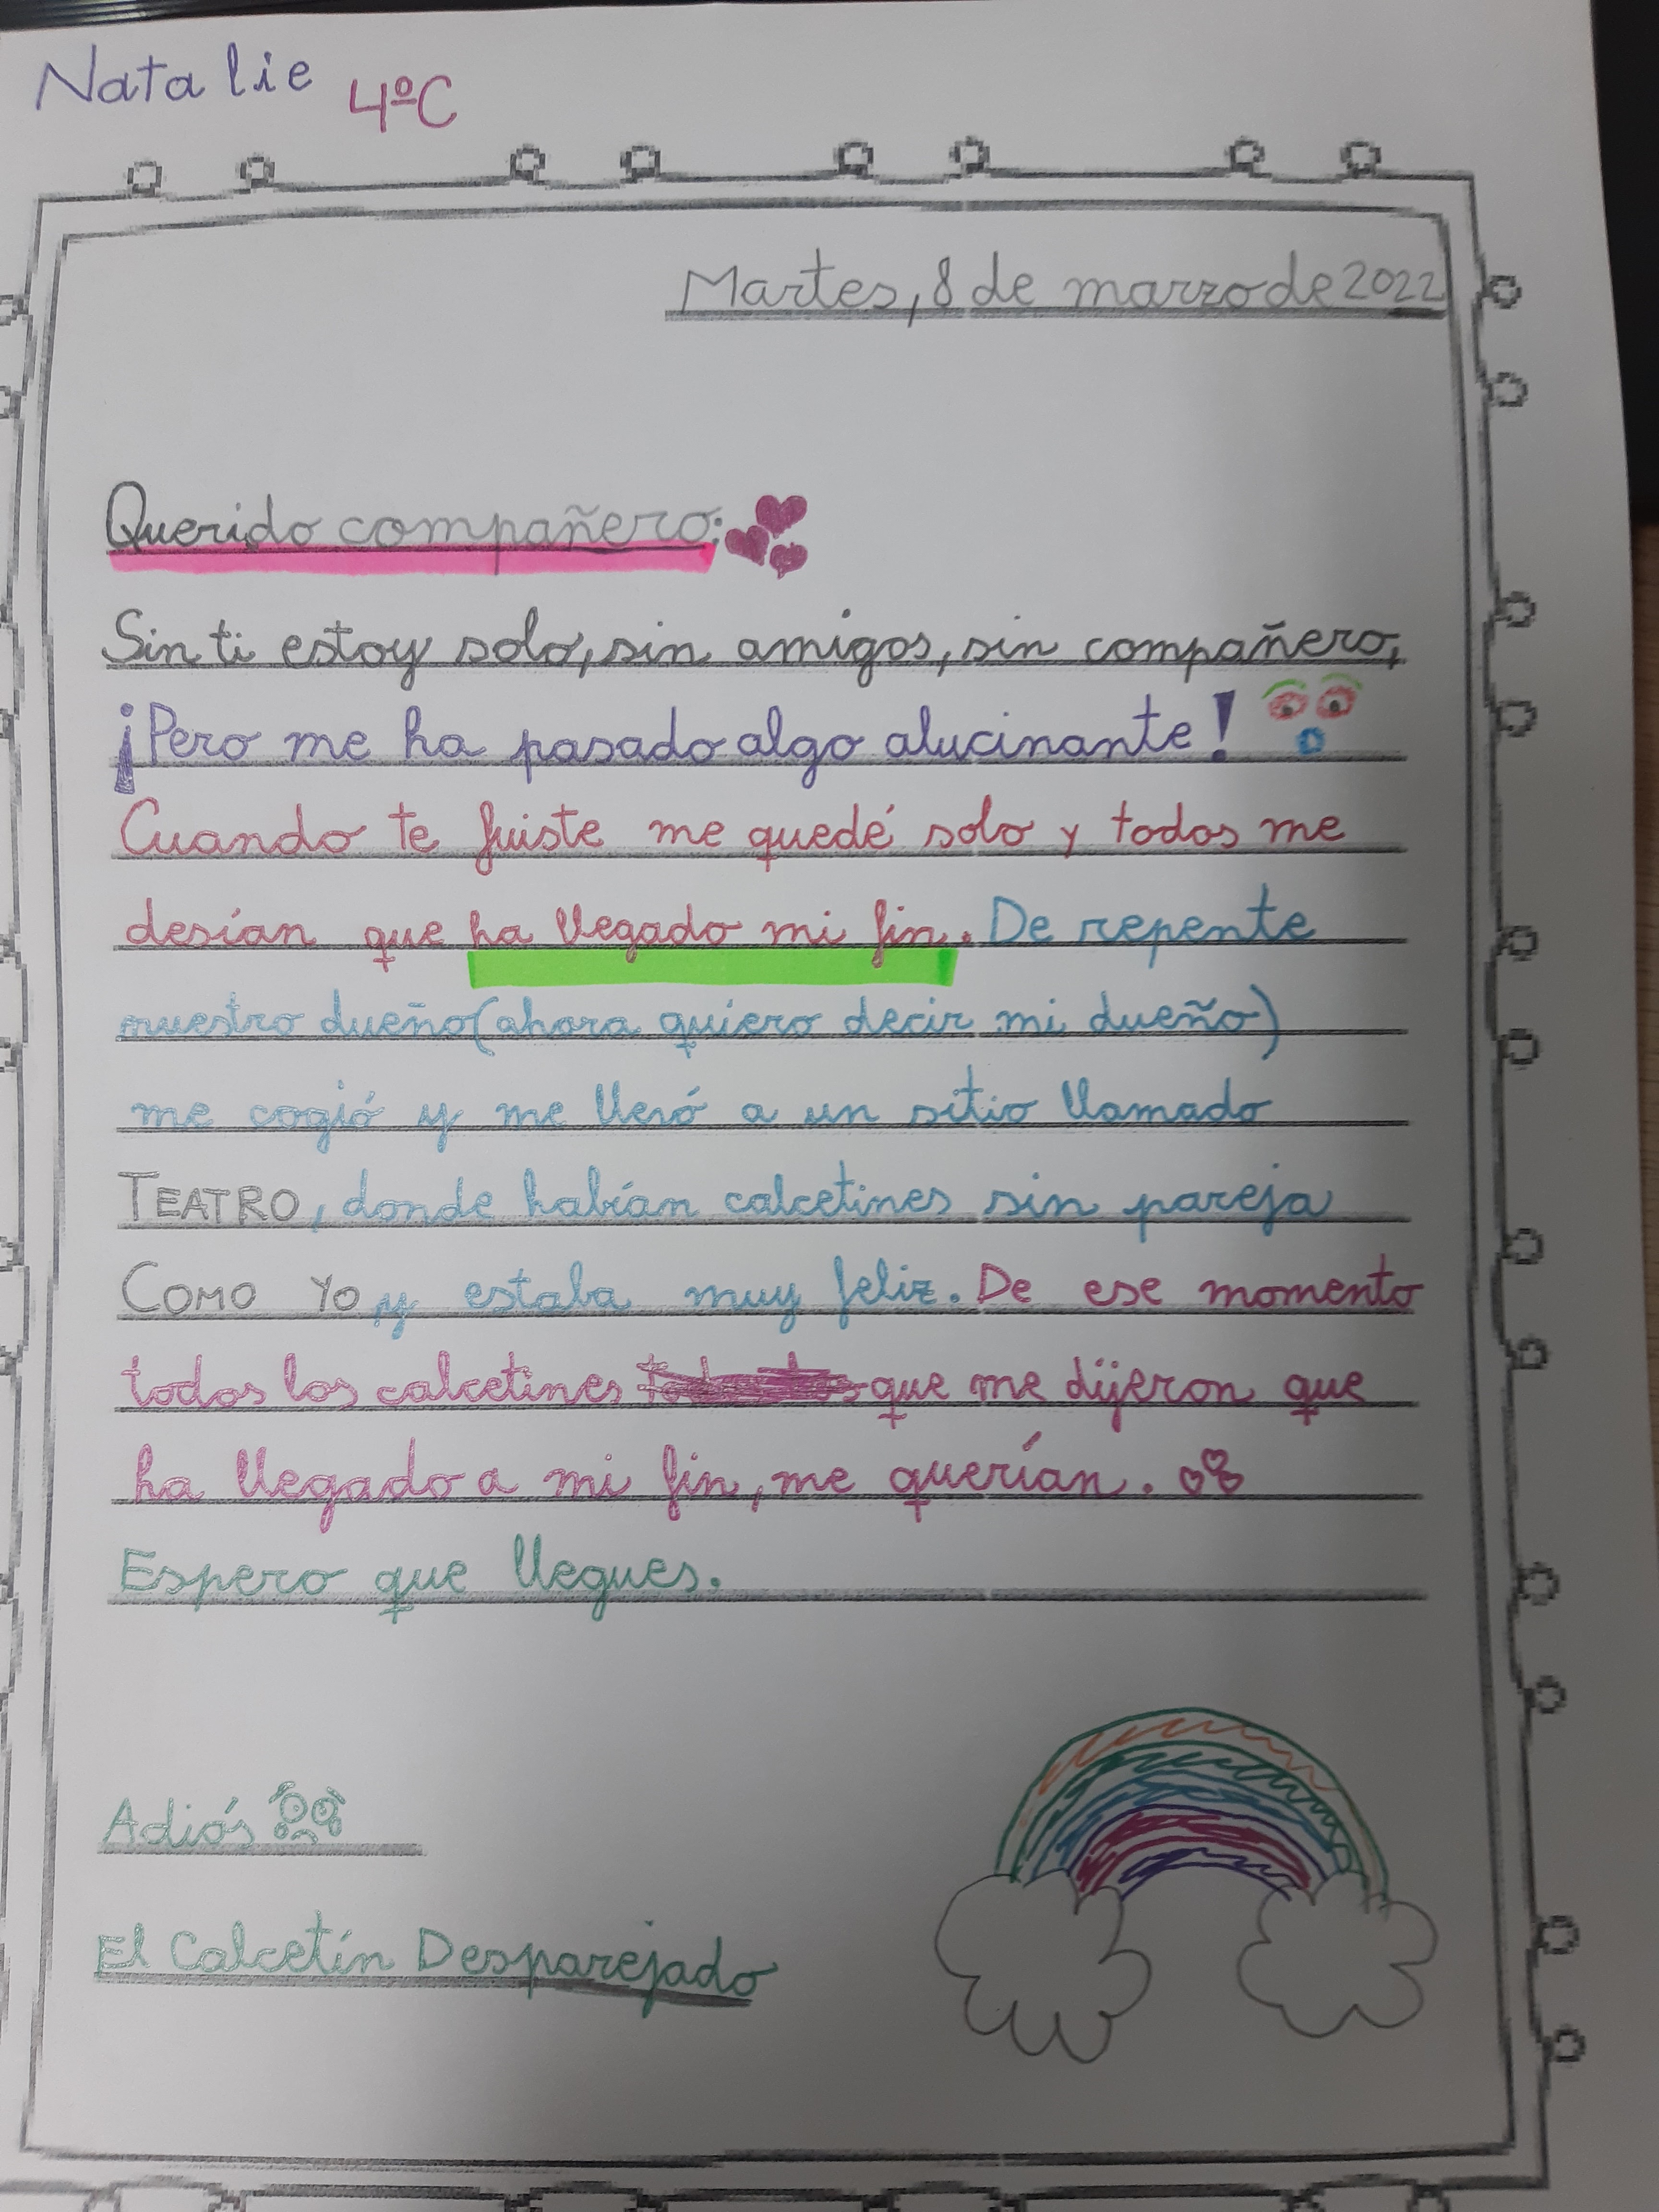 Natalie 4ºC
Martes, 8 de marzo de 2022
Querido compañero:
Sin ti estoy solo, sin amigos, sin compañero,
¡Pero me ha pasado algo alucinante!
Cuando te fuiste me quedé solo y todos me
desían que ha llegado mi fin. De repente
nuestro dueño (ahora quiero decir mi dueño)
me cogió y me llevó a un sitio llamado
TEATRO, donde habían calcetines sin pareja
COMO YO y estaba muy feliz. De ese momento
todos los calcetines que me dijeron que
ha llegado a mi fin, me querían.
Espero que llegues.
Adiós
El Calcetín Desparejado